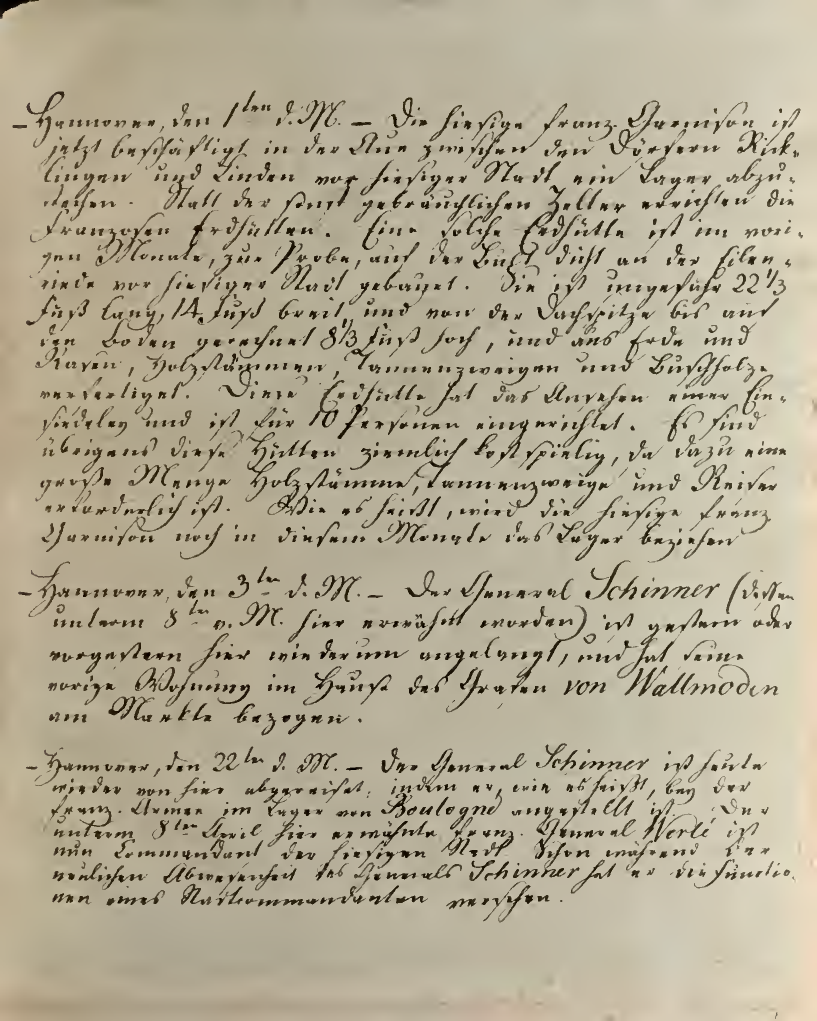 – Hannover, den 1ten d. M. – Die hiesige franz. Garnison ist
jetzt beschäftigt in der Aue zwischen den Dörfern Rick-
lingen und Linden vor hiesiger Stadt ein Lager abzu-
stechen. Statt der sonst gebräuchlichen Zelter errichten die
Franzosen Erdhütten. Eine solche Erdhütte ist im vori-
gen Monate, zur Probe, auf der Bult dicht an der Eilen-
riede vor hiesiger Stadt gebauet. Sie ist ungefähr 22 1/3
Fuß lang, 14 Fuß breit, und von der Dachspitze bis auf
den Boden gerechnet 8 1/3 Fuß hoch, und aus Erde und
Rasen, Holzstämmen, Tannenzweigen und Buschholze
verfertiget. Diese Erdhütte hat das Ansehen einer Ein-
siedeley und ist für 10 Personen eingerichtet. Es sind
übrigens diese Hütten ziemlich kostspielig, da dazu eine
große Menge Holzstämme, Tannenzweige und Reiser
erforderlich ist. Wie es heißt, wird die hiesige franz.
Garnison noch in diesem Monate das Lager beziehen
– Hannover, den 3ten d. M. – Der General Schinner (dessen
unterm 8ten v. M. hier erwähnt worden) ist gestern oder
vorgestern hier wiederum angelangt, und hat seine
vorige Wohnung im Hause des Grafen von Wallmoden
am Markte bezogen.
– Hannover, den 22ten d. M. – Der General Schinner ist heute
wieder von hier abgereiset, indem er, wie es heißt, bey der
franz. Armee im Lager von Boulogne angestellt ist. Der
unterm 8ten April hier erwähnte franz. General Werlé ist
nun Commandant der hiesigen Stadt. Schon während der
neulichen Abwesenheit des Generals Schinner hat er die Functio-
nen eines Stadtcommandanten versehen.